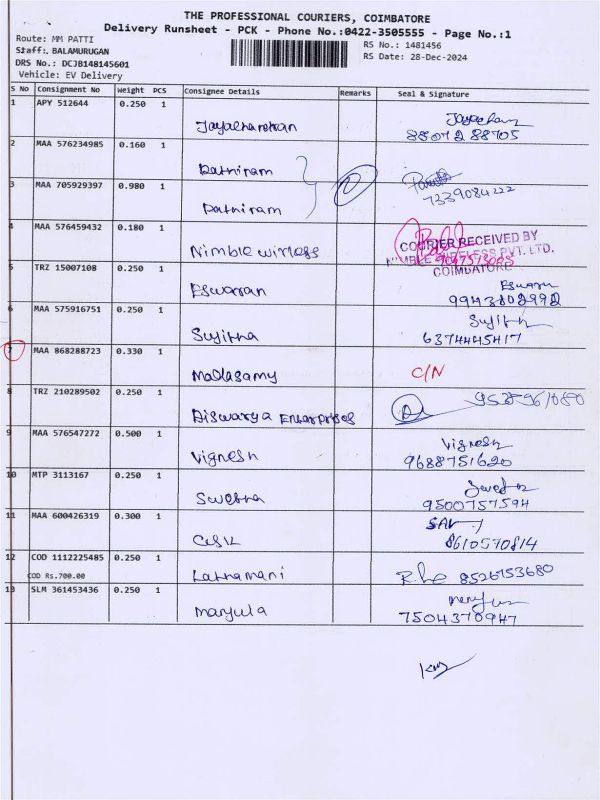 THE PROFESSIONAL COURIERS, COIMBATORE
Delivery Runsheet - PCK - Phone No.:0422-3505555 - Page No.:1
Route: MM PATTI
Staff: BALAMURUGAN
DRS No.: DCJB148145601
Vehicle: EV Delivery
RS No.: 1481456
RS Date: 28-Dec-2024
S No Consignment No Weight PCS Consignee Details Remarks Seal & Signature
1 APY 512644 0.250 1
8807288705
2 MAA 576234985 0.160 1 Pathiram
3 MAA 705929397 0.980 1 Pathiram 2
7339084222
4 MAA 576459432 0.180 1 Nimble wirless
COURIER RECEIVED BY
NIMBLE WIRELESS PVT. LTD.
COIMBATORE
5 TRZ 15007108 0.250 1 Eswaran
6 MAA 575916751 0.250 1 Sujitha Sujitha
6374445417
7 MAA 868288723 0.330 1 Madasamy C/N
8 TRZ 210289502 0.250 1 Aiswarya Enterprises
9 MAA 576547272 0.500 1 Vignesh Vignesh
9688751620
10 MTP 3113167 0.250 1 Swetha
9500757594
11 MAA 600426319 0.300 1
8610570814
12 COD 1112225485 0.250 1 Lathamani 8526753680
COD Rs.700.00
13 SLM 361453436 0.250 1 Manjula
7504370947